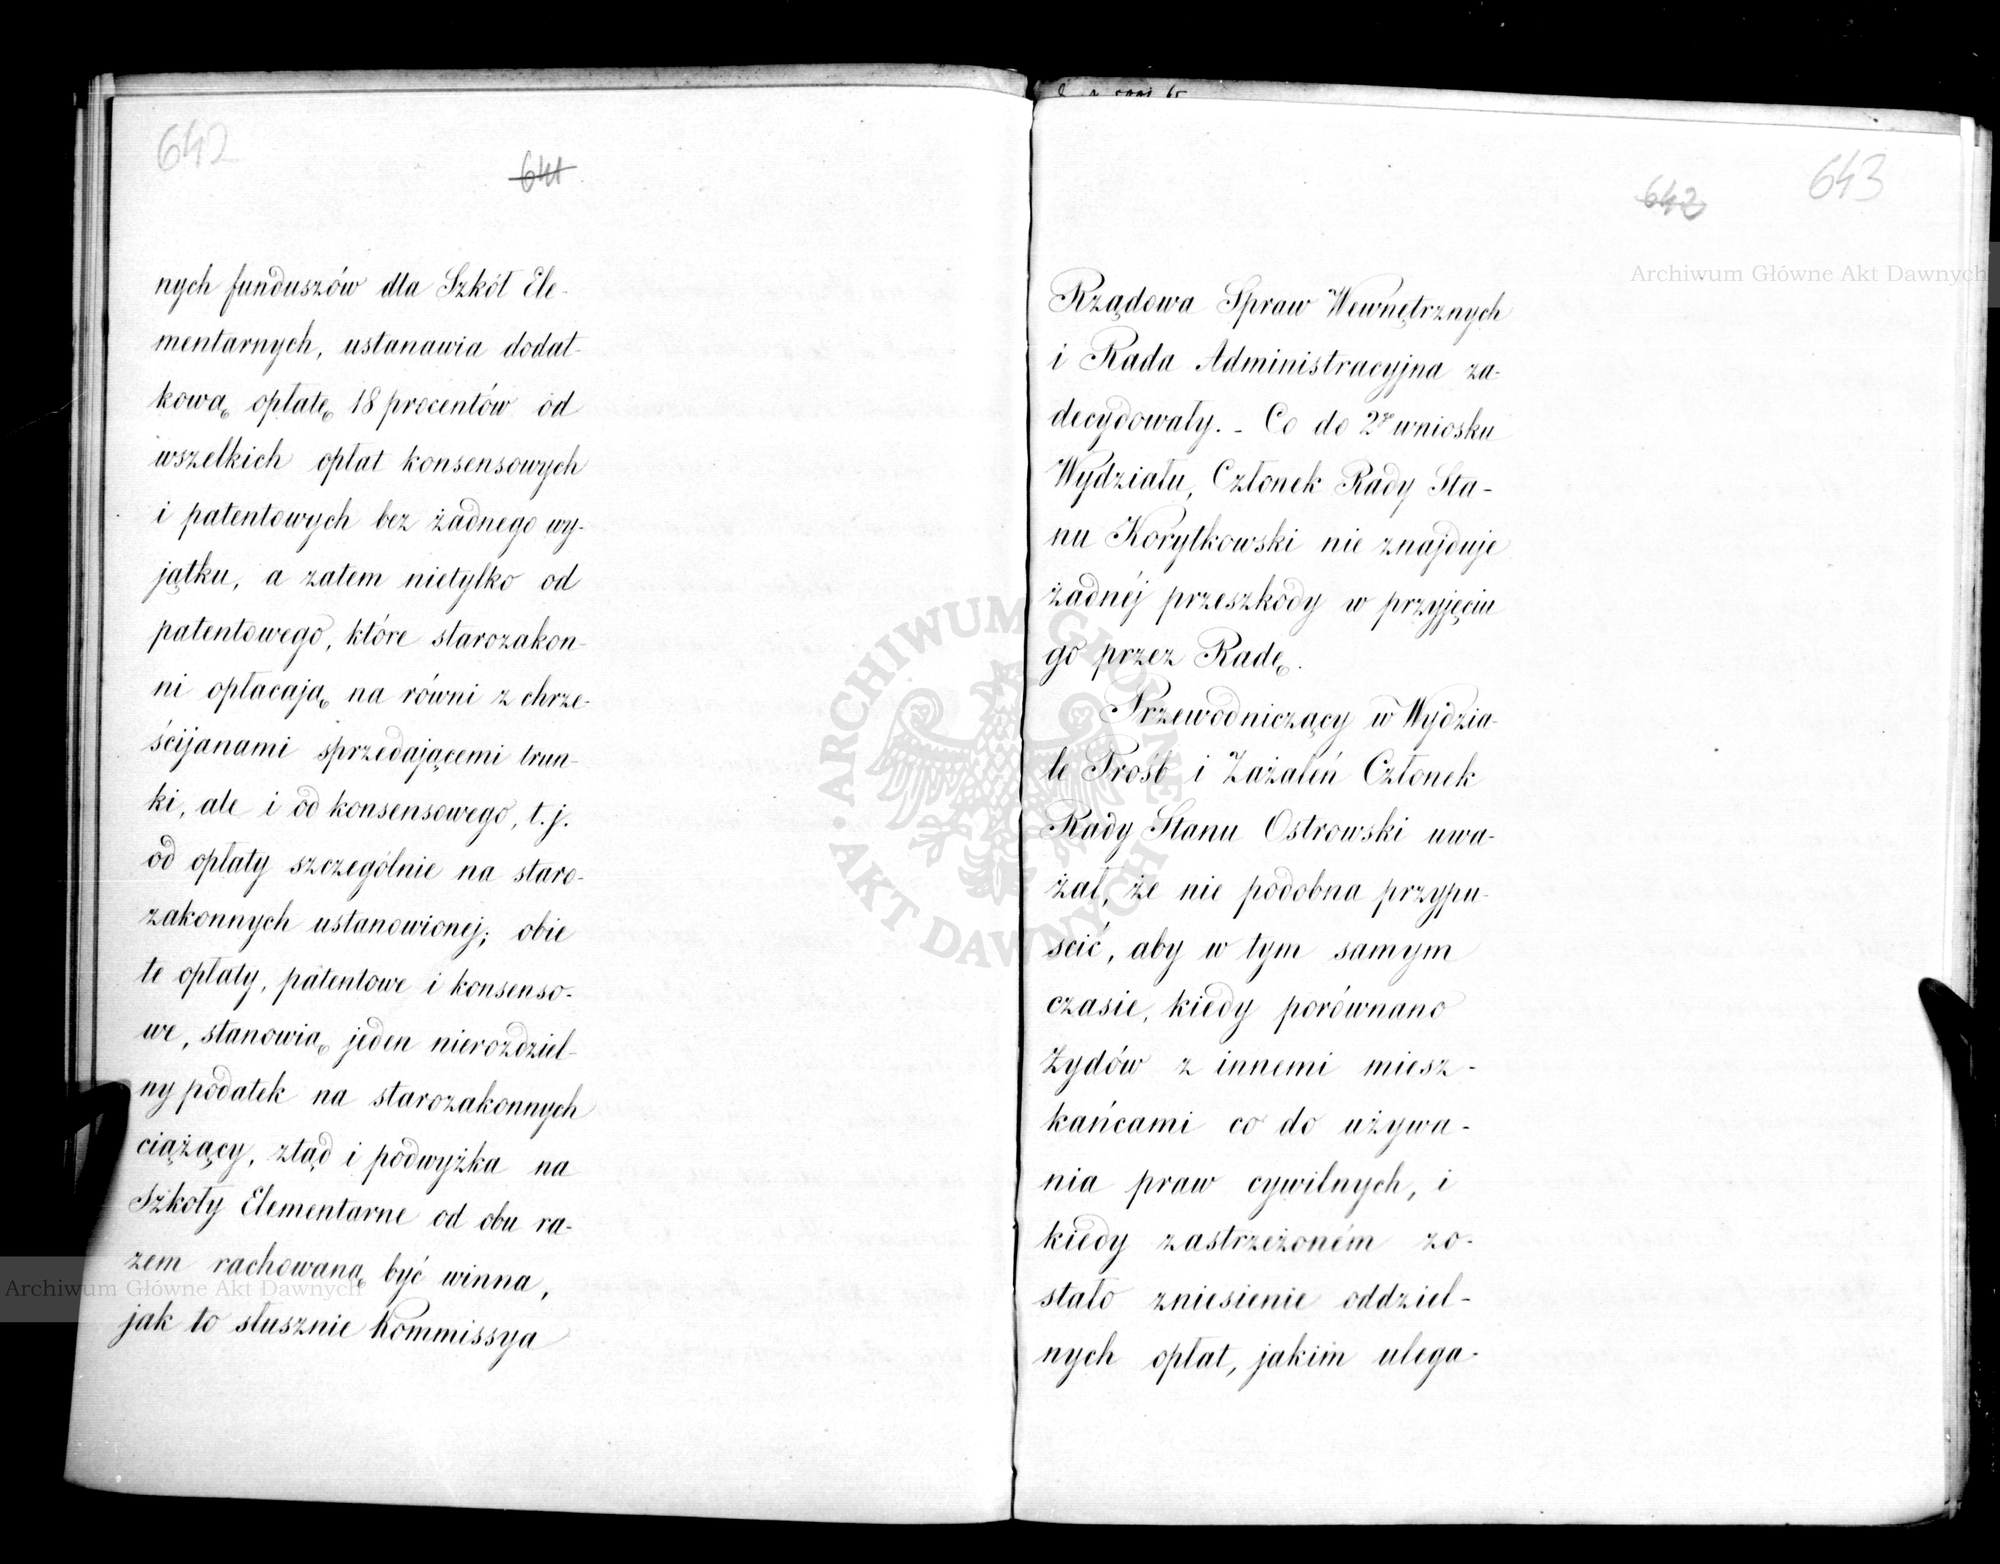 642
641
nych funduszów dla Szkół Ele-
mentarnych, ustanawia dodat-
kową opłatę 18 procentów od
wszelkich opłat konsensowych
i patentowych bez żadnego wy-
jątku, a zatem nietylko od
patentowego, które starozakon-
ni opłacają na równi z chrze-
ścijanami sprzedającemi trun-
ki, ale i od konsensowego, t.j.
od opłaty szczególnie na staro-
zakonnych ustanowionej; obie
te opłaty, patentowe i konsenso-
we, stanowią jeden nierozdziel-
ny podatek na starozakonnych
ciążący, ztąd i podwyżka na
Szkoły Elementarne od obu ra-
zem rachowaną być winna,
jak to słusznie Kommissya
643
642
Rządowa Spraw Wewnętrznych
i Rada Administracyjna za-
decydowały. - Co do 2go wniosku
Wydziału, Członek Rady Sta-
nu Korytkowski nie znajduje
żadnéj przeszkody w przyjęciu
go przez Radę.
Przewodniczący w Wydzia-
le Prośb i Zażaleń Członek
Rady Stanu Ostrowski uwa-
żał, że nie podobna przypu-
scić, aby w tym samym
czasie, kiedy porównano
Żydów z innemi miesz-
kańcami co do używa-
nia praw cywilnych, i
kiedy zastrzeżoném zo-
stało zniesienie oddziel-
nych opłat, jakim ulega-
Archiwum Główne Akt Dawnych
Archiwum Główne Akt Dawnych
ARCHIWUM GŁÓWNE · AKT DAWNYCH ·